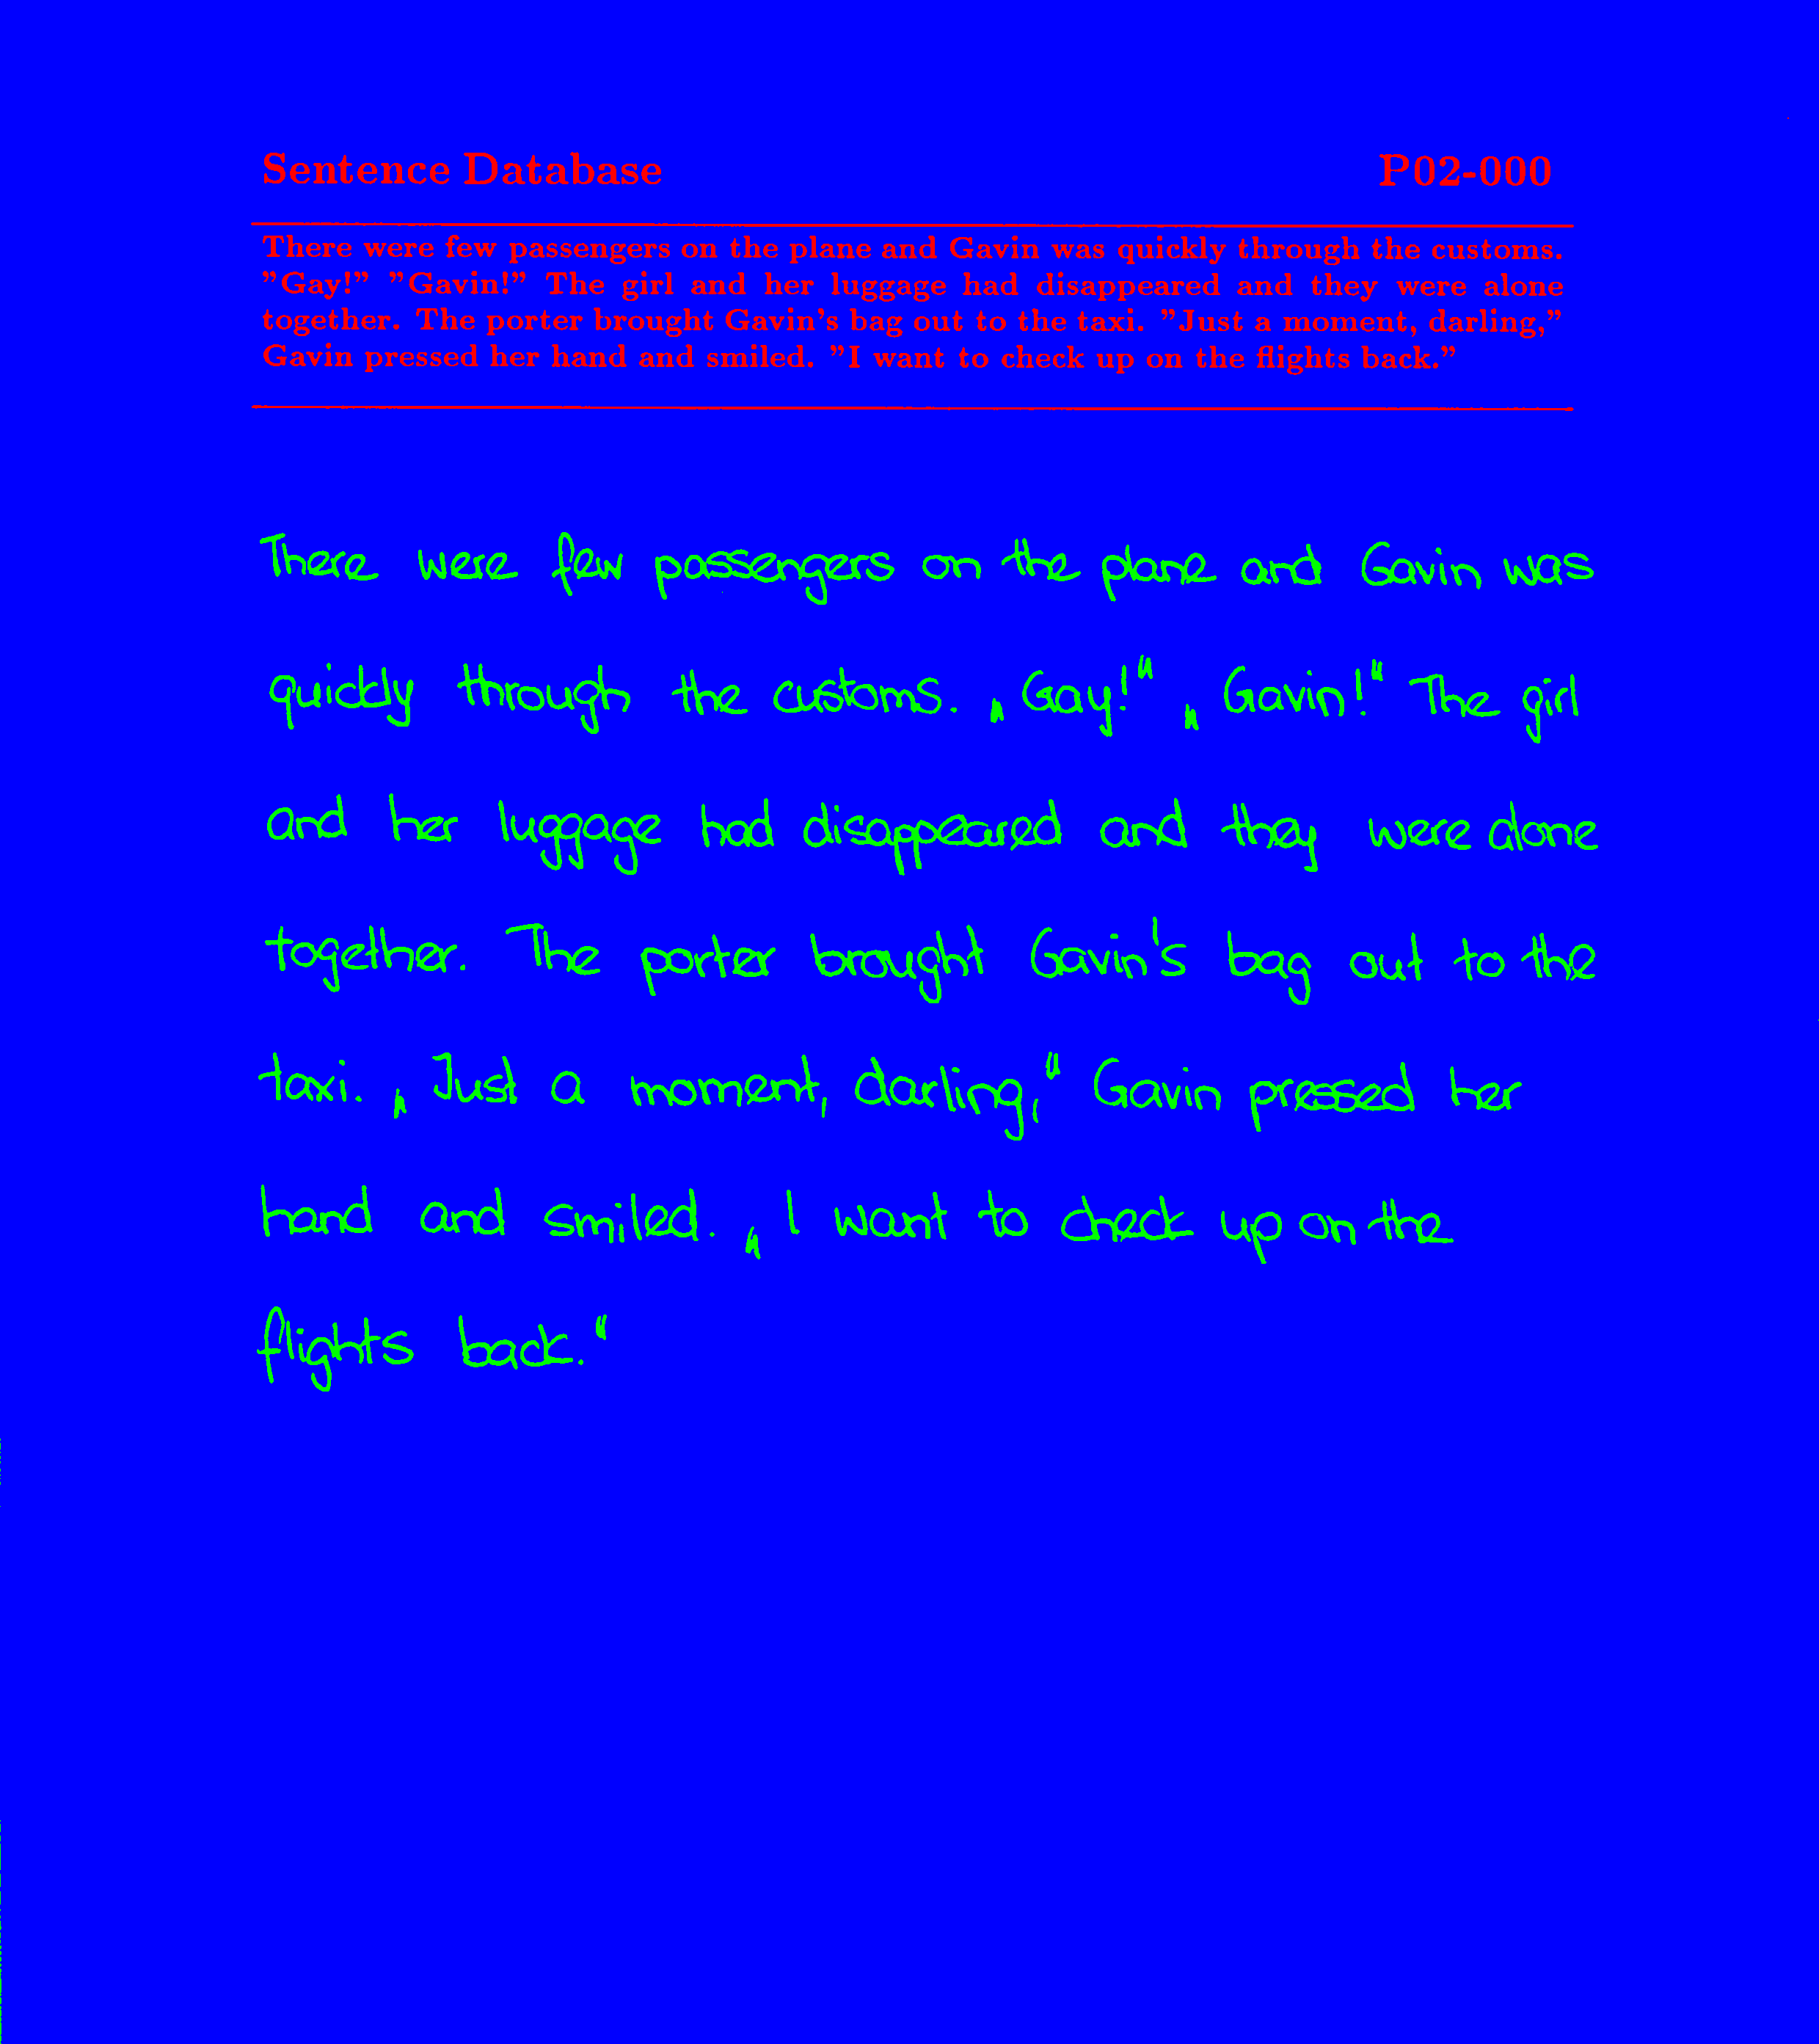 Sentence Database P02-000
There were few passengers on the plane and Gavin was quickly through the customs.
"Gay!" "Gavin!" The girl and her luggage had disappeared and they were alone
together. The porter brought Gavin's bag out to the taxi. "Just a moment, darling,"
Gavin pressed her hand and smiled. "I want to check up on the flights back."
There were few passengers on the plane and Gavin was
quickly through the customs. „Gay!“ „Gavin!“ The girl
and her luggage had disappeared and they were alone
together. The porter brought Gavin's bag out to the
taxi. „Just a moment, darling,“ Gavin pressed her
hand and smiled. „I want to check up on the
flights back.“